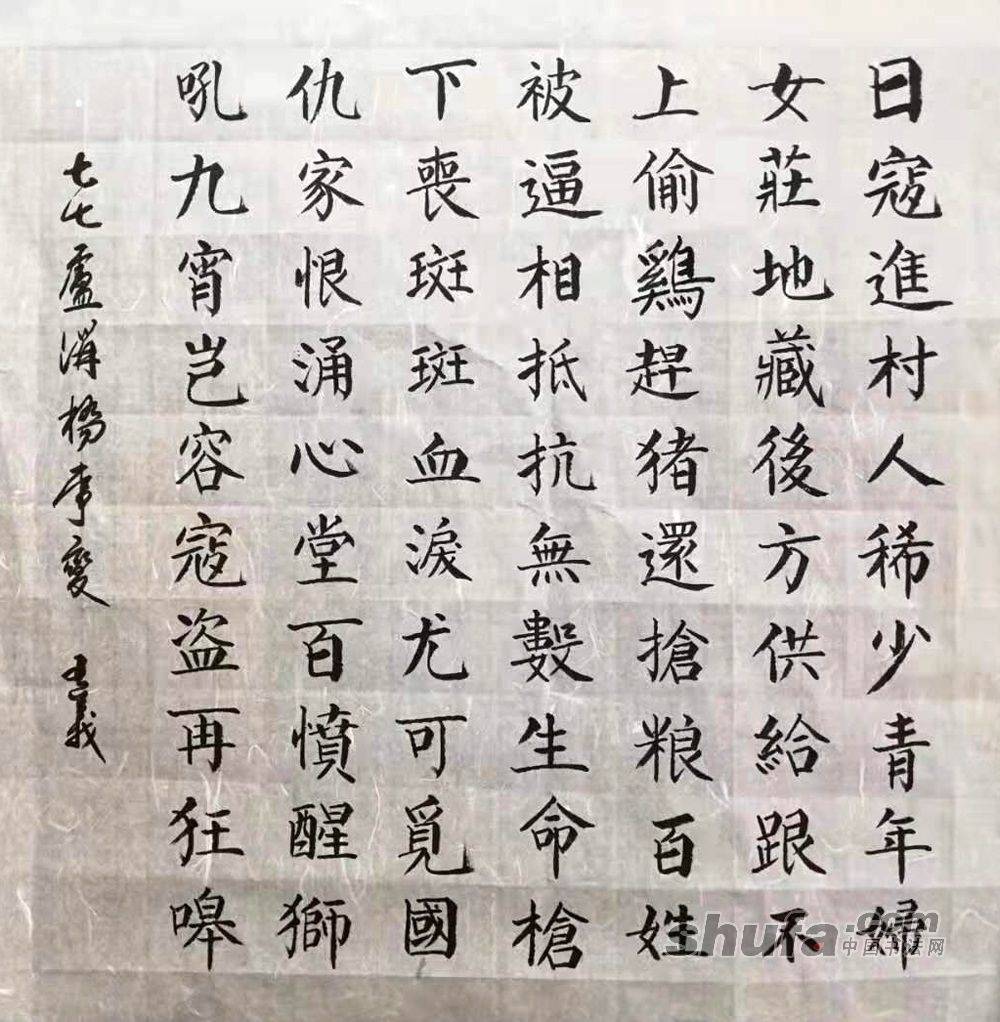 日寇進村人稀少青年婦
女莊地藏後方供給跟不
上偷鷄趕猪還搶粮百姓
被逼相抵抗無數生命槍
下喪斑斑血淚尤可覓國
仇家恨涌心堂百憤醒獅
吼九宵岂容寇盗再狂嗥
七七盧溝橋事變
shufa.com
中国书法网